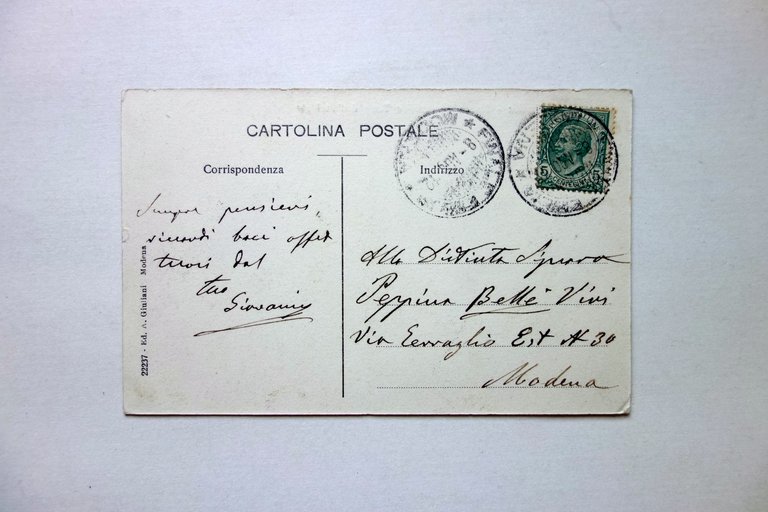 CARTOLINA POSTALE
Corrispondenza
Indirizzo
Sempre pensieri,
ricordi baci affet
tuosi dal
tuo
Giovanni
Alla Distinta Signora
Peppina Bellè Vivi
Via Terraglio Est N 30
Modena
22237 - Ed. A. Giuliani Modena
FINALE
5 5